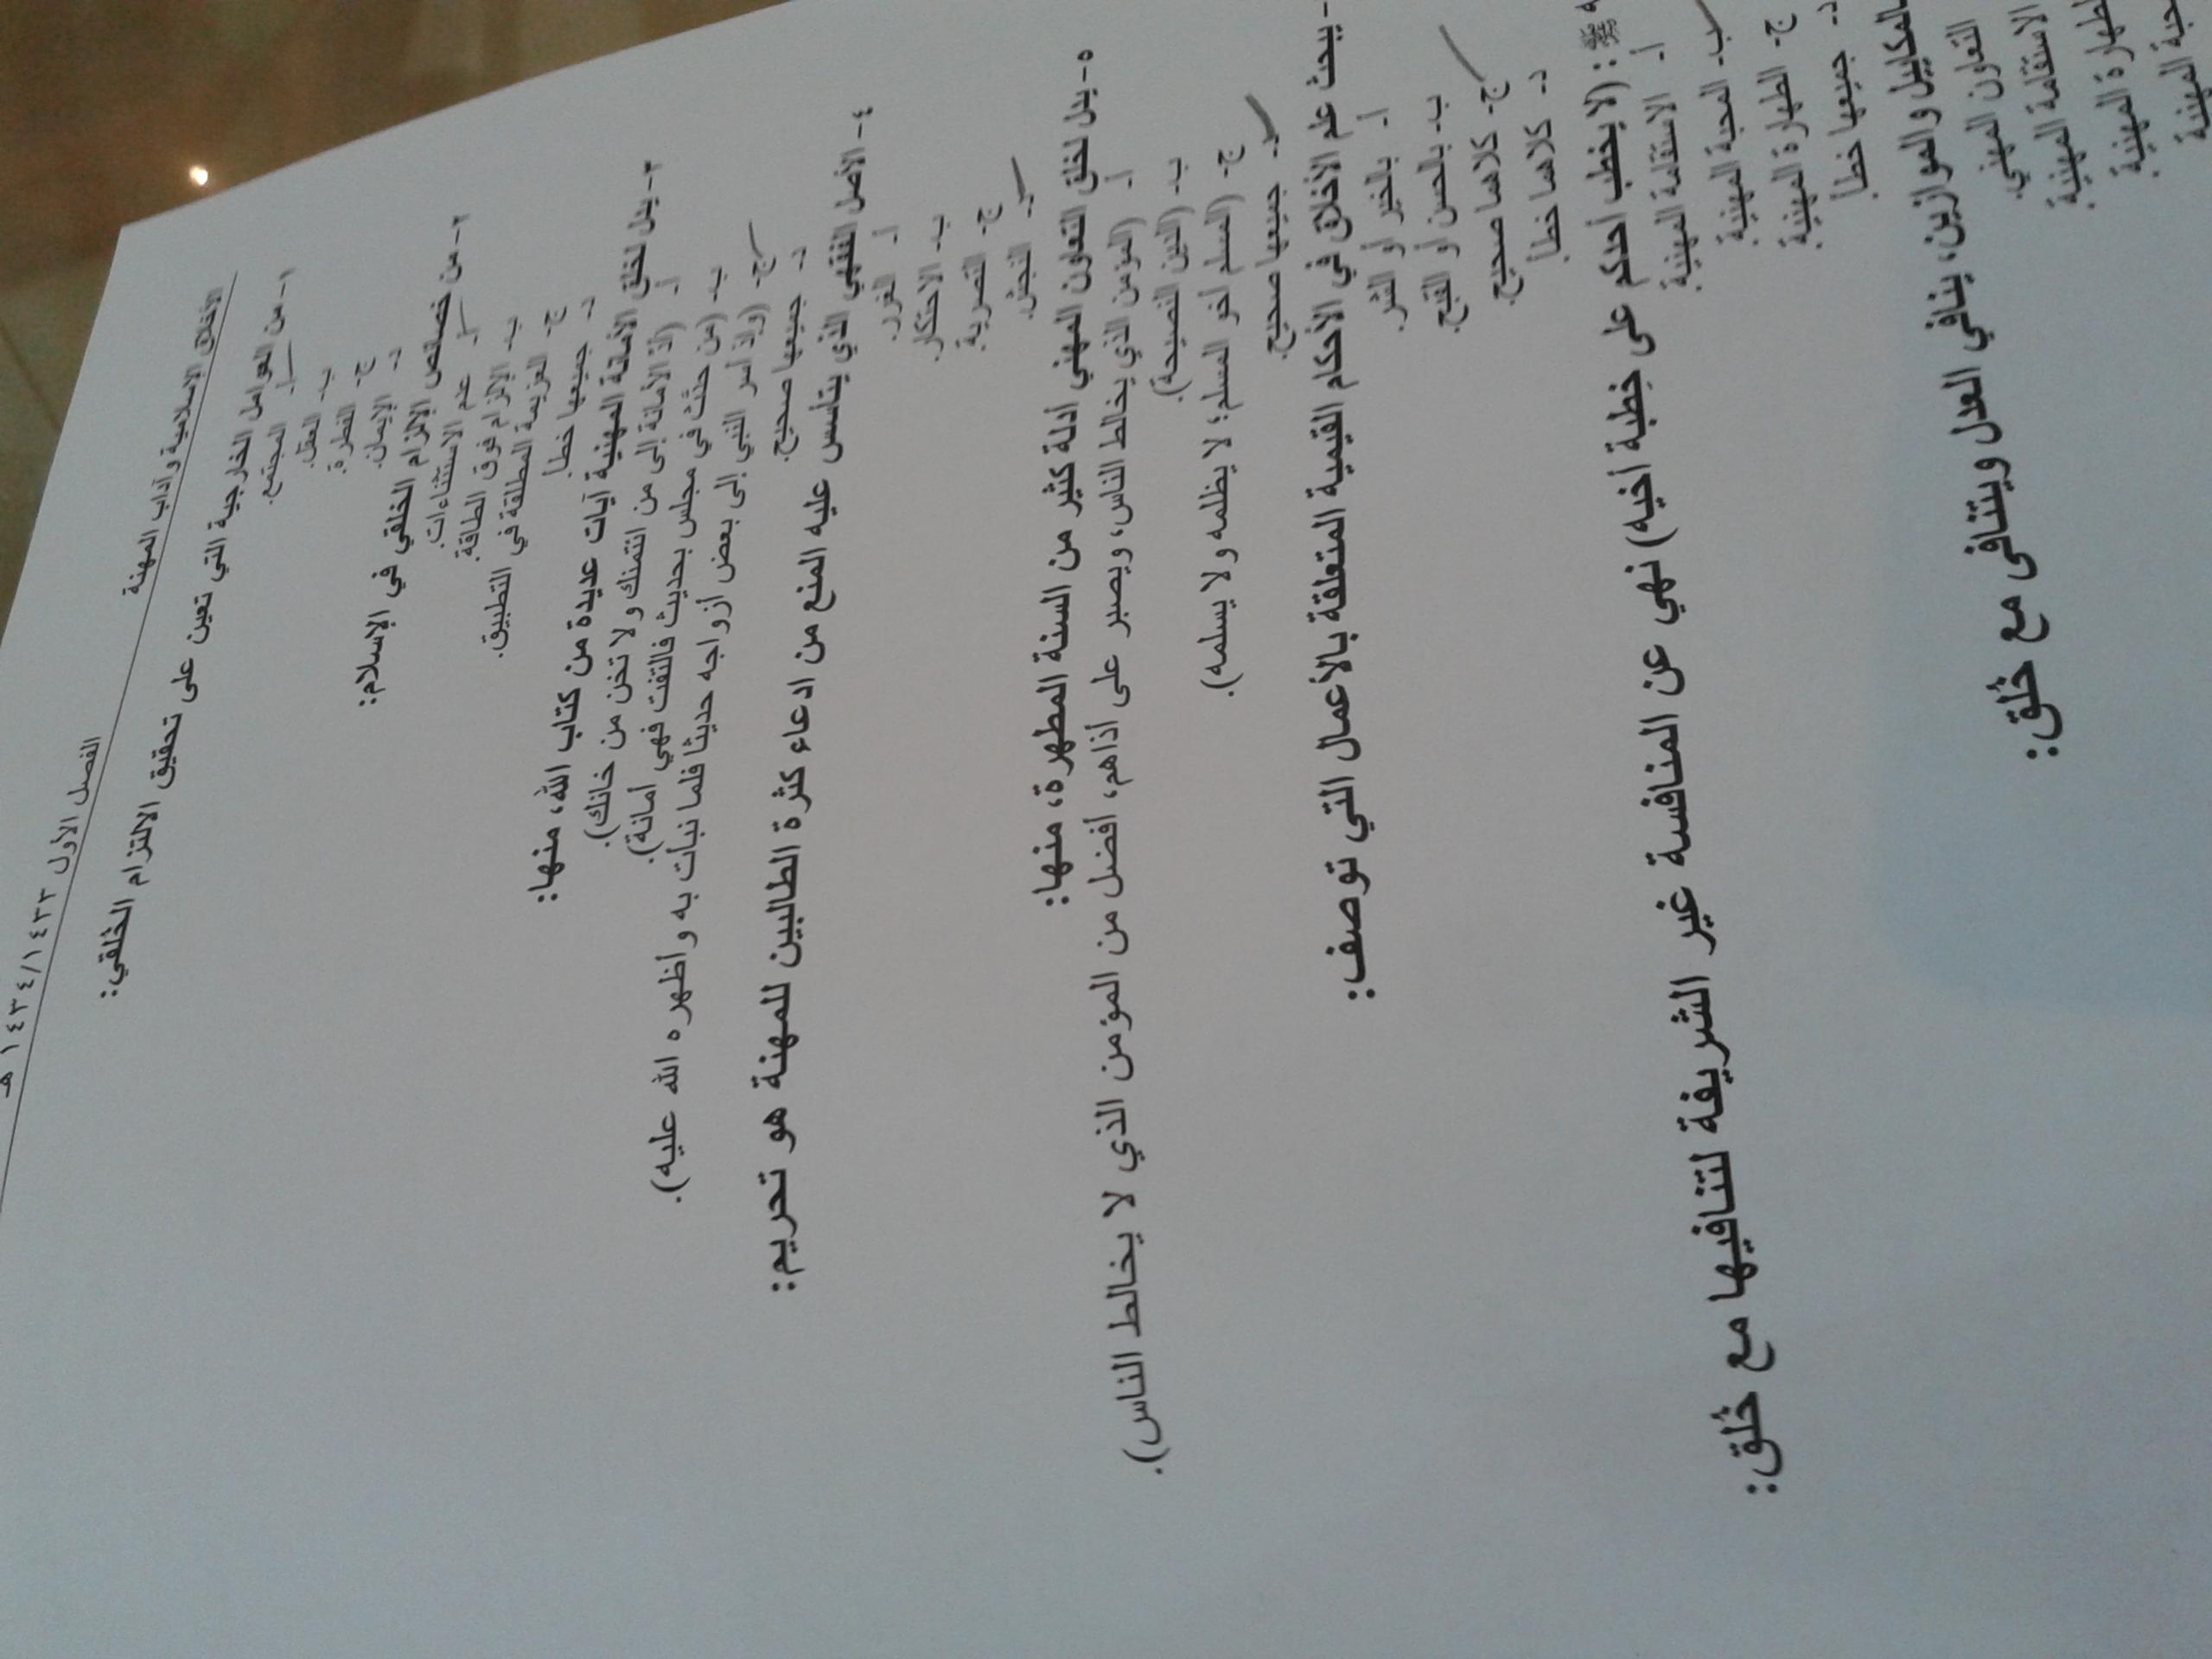 الأخلاق الإسلامية وآداب المهنة
الفصل الأول ١٤٣٤/١٤٣٣ هـ
١- من العوامل الخارجية التي تعين على تحقيق الالتزام الخُلقي:
أ- المجتمع.
ب- العقل.
ج- الفطرة.
د- الإيمان.
٢- من خصائص الإلزام الخلقي في الإسلام:
أ- عدم الاستثناءات.
ب- الإلزام فوق الطاقة.
ج- العزيمة المطلقة في التطبيق.
د- جميعها خطأ.
٣- يدل لخلق الأمانة المهنية آيات عديدة من كتاب الله، منها:
أ- (أدّ الأمانة إلى من ائتمنك ولا تخن من خانك).
ب- (من حدّث في مجلس بحديث فالتفت فهي أمانة).
ج- (وإذ أسر النبي إلى بعض أزواجه حديثا فلما نبأت به وأظهره الله عليه).
د- جميعها صحيح.
٤- الأصل الفقهي الذي يتأسس عليه المنع من ادعاء كثرة الطالبين للمهنة هو تحريم:
أ- الغرر.
ب- الاحتكار.
ج- التصرية.
د- النجش.
٥- يدل لخلق التعاون المهني أدلة كثير من السنة المطهرة، منها:
أ- (المؤمن الذي يخالط الناس، ويصبر على أذاهم، أفضل من المؤمن الذي لا يخالط الناس).
ب- (الدين النصيحة).
ج- (المسلم أخو المسلم؛ لا يظلمه ولا يسلمه).
د- جميعها صحيح.
- يبحث علم الأخلاق في الأحكام القيمية المتعلقة بالأعمال التي توصف:
أ- بالخير أو الشر.
ب- بالحسن أو القبح.
ج- كلاهما صحيح.
د- كلاهما خطأ
ﷺ: (لا يخطب أحدكم على خِطبة أخيه) نهي عن المنافسة غير الشريفة لتنافيها مع خُلق:
أ- الاستقامة المهنية
ب- المحبة المهنية
ج- الطهارة المهنية
د- جميعها خطأ
المكاييل والموازين، ينافي العدل ويتنافى مع خُلق:
التعاون المهني.
الاستقامة المهنية
الطهارة المهنية
المهنية